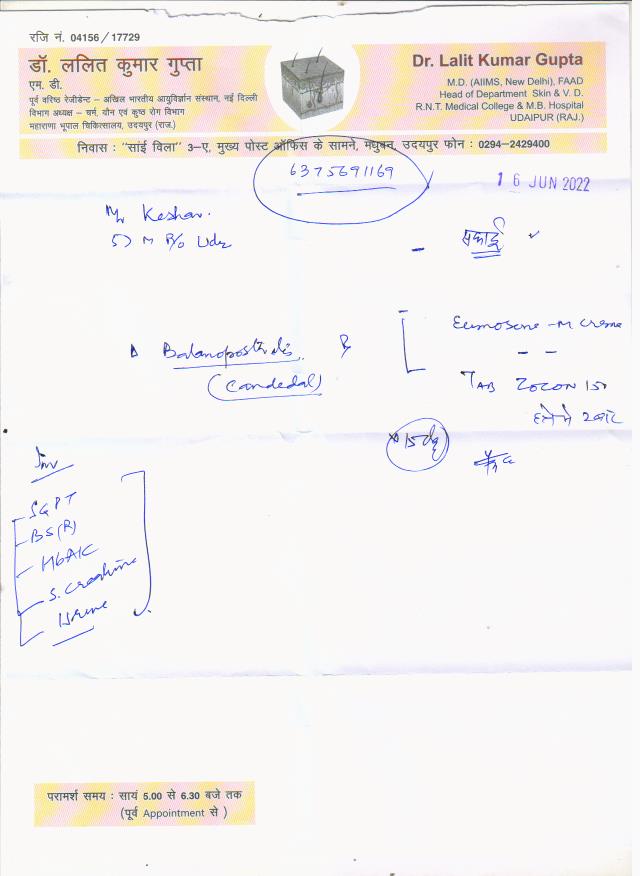 रजि नं. 04156 / 17729
डॉ. ललित कुमार गुप्ता
एम. डी.
पूर्व वरिष्ठ रेजीडेन्ट – अखिल भारतीय आयुर्विज्ञान संस्थान, नई दिल्ली
विभाग अध्यक्ष – चर्म, यौन एवं कुष्ठ रोग विभाग
महाराणा भूपाल चिकित्सालय, उदयपुर (राज.)
Dr. Lalit Kumar Gupta
M.D. (AIIMS, New Delhi), FAAD
Head of Department Skin & V. D.
R.N.T. Medical College & M.B. Hospital
UDAIPUR (RAJ.)
निवास : "सांई विला" 3–ए, मुख्य पोस्ट ऑफिस के सामने, मधुबन, उदयपुर फोन : 0294-2429400
6375691169
16 JUN 2022
Mr Keshav.
M R/o Udz
- सफाई
Δ Balanoposthitis
(Candedal)
Eumosone -M creme
TAB ZOCON 150
हफ्ते मे २ बार
x 15 dy
Inv
SGPT
BS(R)
HbA1C
S. Creatinine
Urine
परामर्श समय : सायं 5.00 से 6.30 बजे तक
(पूर्व Appointment से )